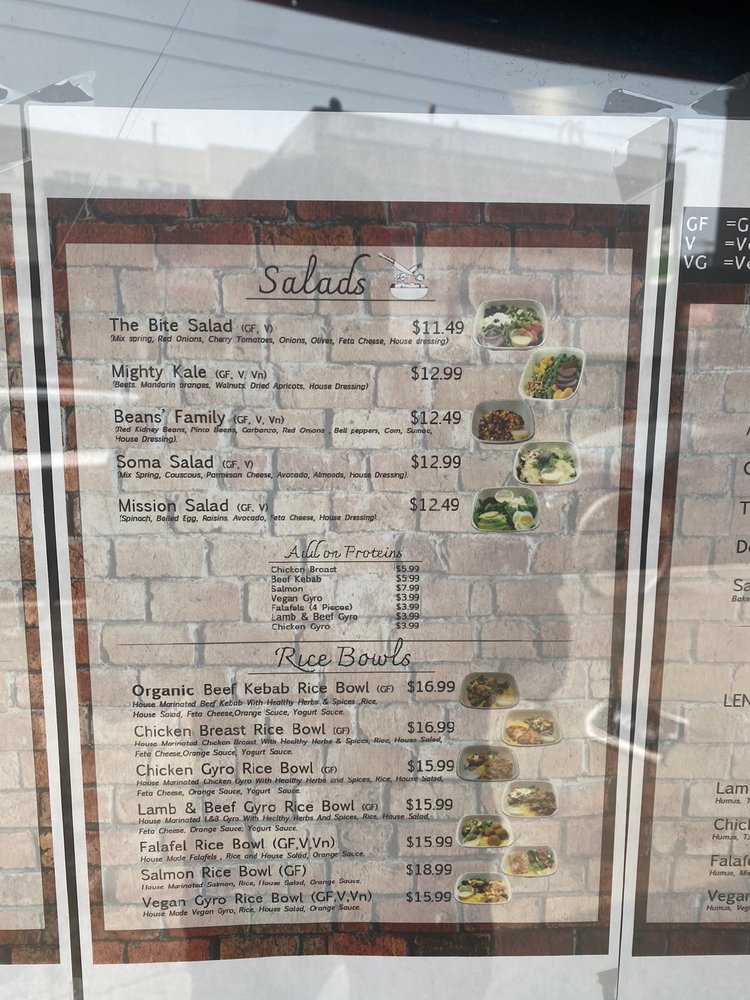 Salads
The Bite Salad (GF, V) $11.49
(Mix spring, Red Onions, Cherry Tomatoes, Onions, Olives, Feta Cheese, House dressing)
Mighty Kale (GF, V, Vn) $12.99
(Beets, Mandarin oranges, Walnuts, Dried Apricots, House Dressing)
Beans' Family (GF, V, Vn) $12.49
(Red Kidney Beans, Pinto Beans, Garbanzo, Red Onions , Bell peppers, Corn, Sumac,
House Dressing).
Soma Salad (GF, V) $12.99
(Mix Spring, Couscous, Parmesan Cheese, Avocado, Almonds, House Dressing).
Mission Salad (GF, V) $12.49
(Spinach, Boiled Egg, Raisins, Avocado, Feta Cheese, House Dressing).
Add on Proteins
Chicken Breast $5.99
Beef Kebab $5.99
Salmon $7.99
Vegan Gyro $3.99
Falafels (4 Pieces) $3.99
Lamb & Beef Gyro $3.99
Chicken Gyro $3.99
Rice Bowls
Organic Beef Kebab Rice Bowl (GF) $16.99
House Marinated Beef Kebab With Healthy Herbs & Spices ,Rice,
House Salad, Feta Cheese,Orange Sauce, Yogurt Sauce.
Chicken Breast Rice Bowl (GF) $16.99
House Marinated Chicken Breast With Healthy Herbs & Spices, Rice, House Salad,
Feta Cheese,Orange Sauce, Yogurt Sauce.
Chicken Gyro Rice Bowl (GF) $15.99
House Marinated Chicken Gyro With Healthy Herbs and Spices, Rice, House Salad,
Feta Cheese, Orange Sauce, Yogurt Sauce.
Lamb & Beef Gyro Rice Bowl (GF) $15.99
House Marinated L&B Gyro With Healthy Herbs And Spices, Rice, House Salad,
Feta Cheese, Orange Sauce, Yogurt Sauce.
Falafel Rice Bowl (GF,V,Vn) $15.99
House Made Falafels , Rice and House Salad, Orange Sauce.
Salmon Rice Bowl (GF) $18.99
House Marinated Salmon, Rice, House Salad, Orange Sauce.
Vegan Gyro Rice Bowl (GF,V,Vn) $15.99
House Made Vegan Gyro, Rice, House Salad, Orange Sauce.
GF =G
V =V
VG =Ve
LEN
Lam
Humus, T
Chic
Humus, T
Falaf
Humus, Mi
Vegan
Humus, Veg